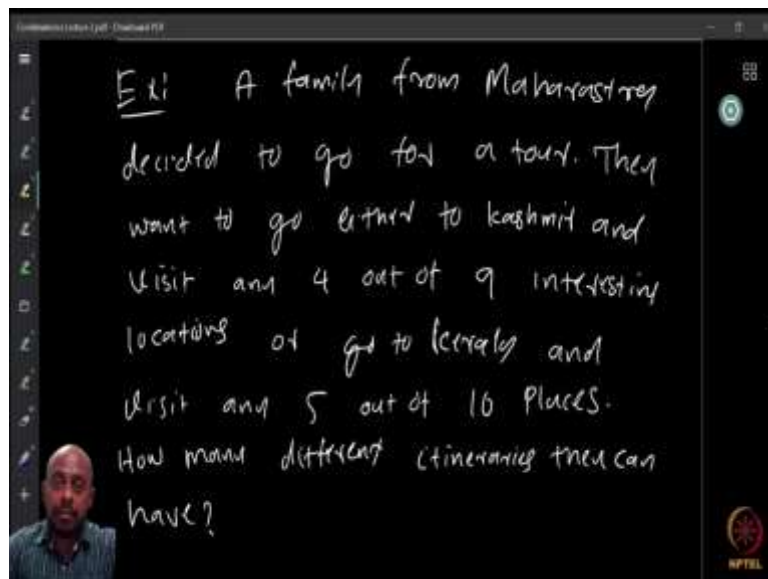 Combinatorics Lecture 2.pdf - Drawboard PDF
Ex: A family from Maharastra
decided to go for a tour. They
want to go either to kashmir and
Visit any 4 out of 9 interesting
locations or go to kerala and
Visit any 5 out of 10 Places.
How many different itineraries they can
have?
NPTEL